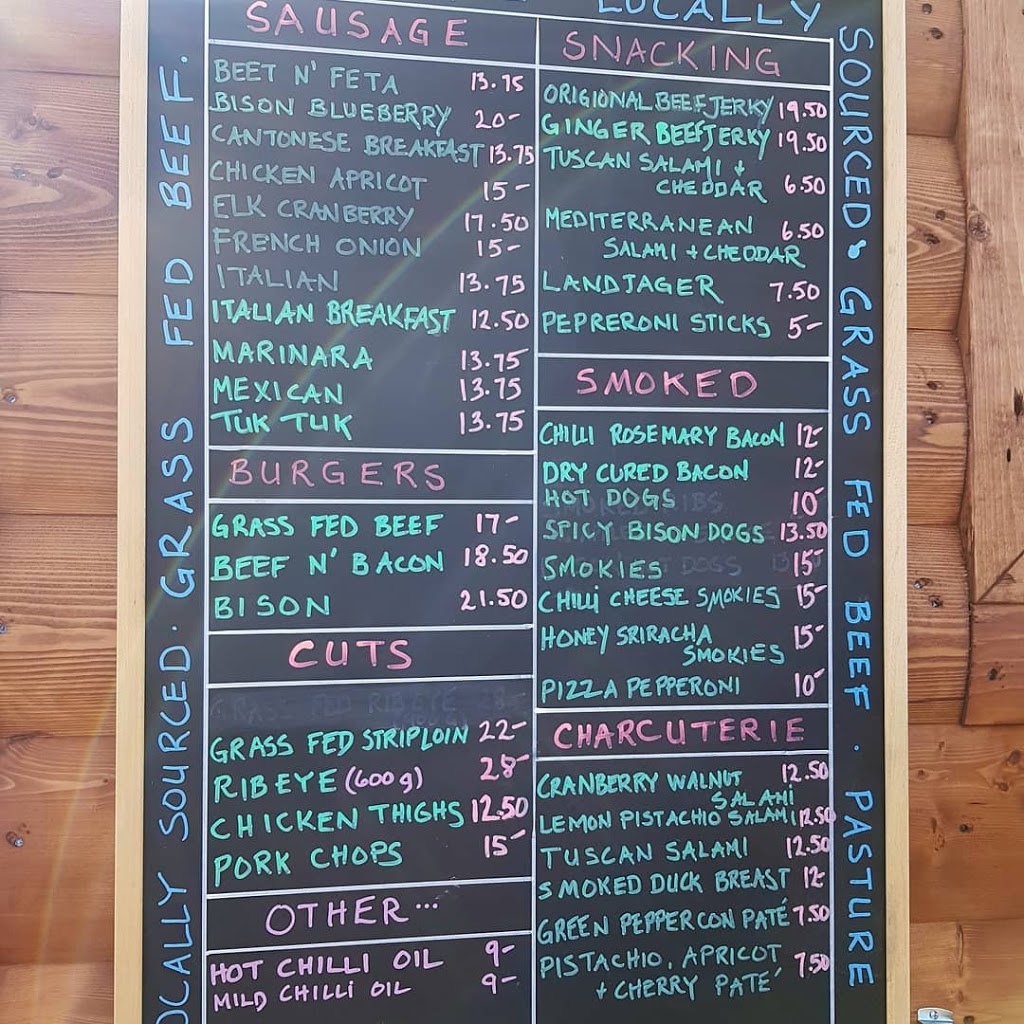 LOCALLY
SOURCED • GRASS FED BEEF. PASTURE
LOCALLY SOURCED. GRASS FED BEEF.
SAUSAGE
BEET N' FETA 13.75
BISON BLUEBERRY 20-
CANTONESE BREAKFAST 13.75
CHICKEN APRICOT 15-
ELK CRANBERRY 17.50
FRENCH ONION 15-
ITALIAN 13.75
ITALIAN BREAKFAST 12.50
MARINARA 13.75
MEXICAN 13.75
TUK TUK 13.75
BURGERS
GRASS FED BEEF 17-
BEEF N' BACON 18.50
BISON 21.50
CUTS
GRASS FED RIBEYE 28-
GRASS FED STRIPLOIN 22-
RIBEYE (600g) 28-
CHICKEN THIGHS 12.50
PORK CHOPS 15-
OTHER...
HOT CHILLI OIL 9-
MILD CHILLI OIL 9-
SNACKING
ORIGIONAL BEEF JERKY 19.50
GINGER BEEF JERKY 19.50
TUSCAN SALAMI +
CHEDDAR 6.50
MEDITERRANEAN 6.50
SALAMI + CHEDDAR
LANDJAGER 7.50
PEPRERONI STICKS 5-
SMOKED
CHILLI ROSEMARY BACON 12-
DRY CURED BACON 12-
HOT DOGS 10-
SPICY BISON DOGS 13.50
SMOKIES 15-
CHILLI CHEESE SMOKIES 15-
HONEY SRIRACHA 15-
SMOKIES
PIZZA PEPPERONI 10-
CHARCUTERIE
CRANBERRY WALNUT 12.50
SALAMI
LEMON PISTACHIO SALAMI 12.50
TUSCAN SALAMI 12.50
SMOKED DUCK BREAST 12-
GREEN PEPPERCON PATÉ 7.50
PISTACHIO, APRICOT 7.50
+ CHERRY PATÉ